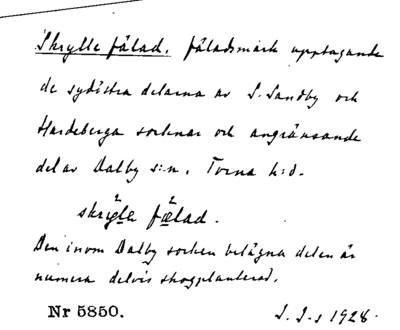 Skrylle fälad. fäladsmark upptagande
de sydöstra delarna av S. Sandby och
Hardeberga socknar och angränsande
del av Dalby s:n. Torna h:d.
skryle fælad.
Den inom Dalby socken belägna delen är
numera delvis skogplanterad.
Nr 5850.
1928.